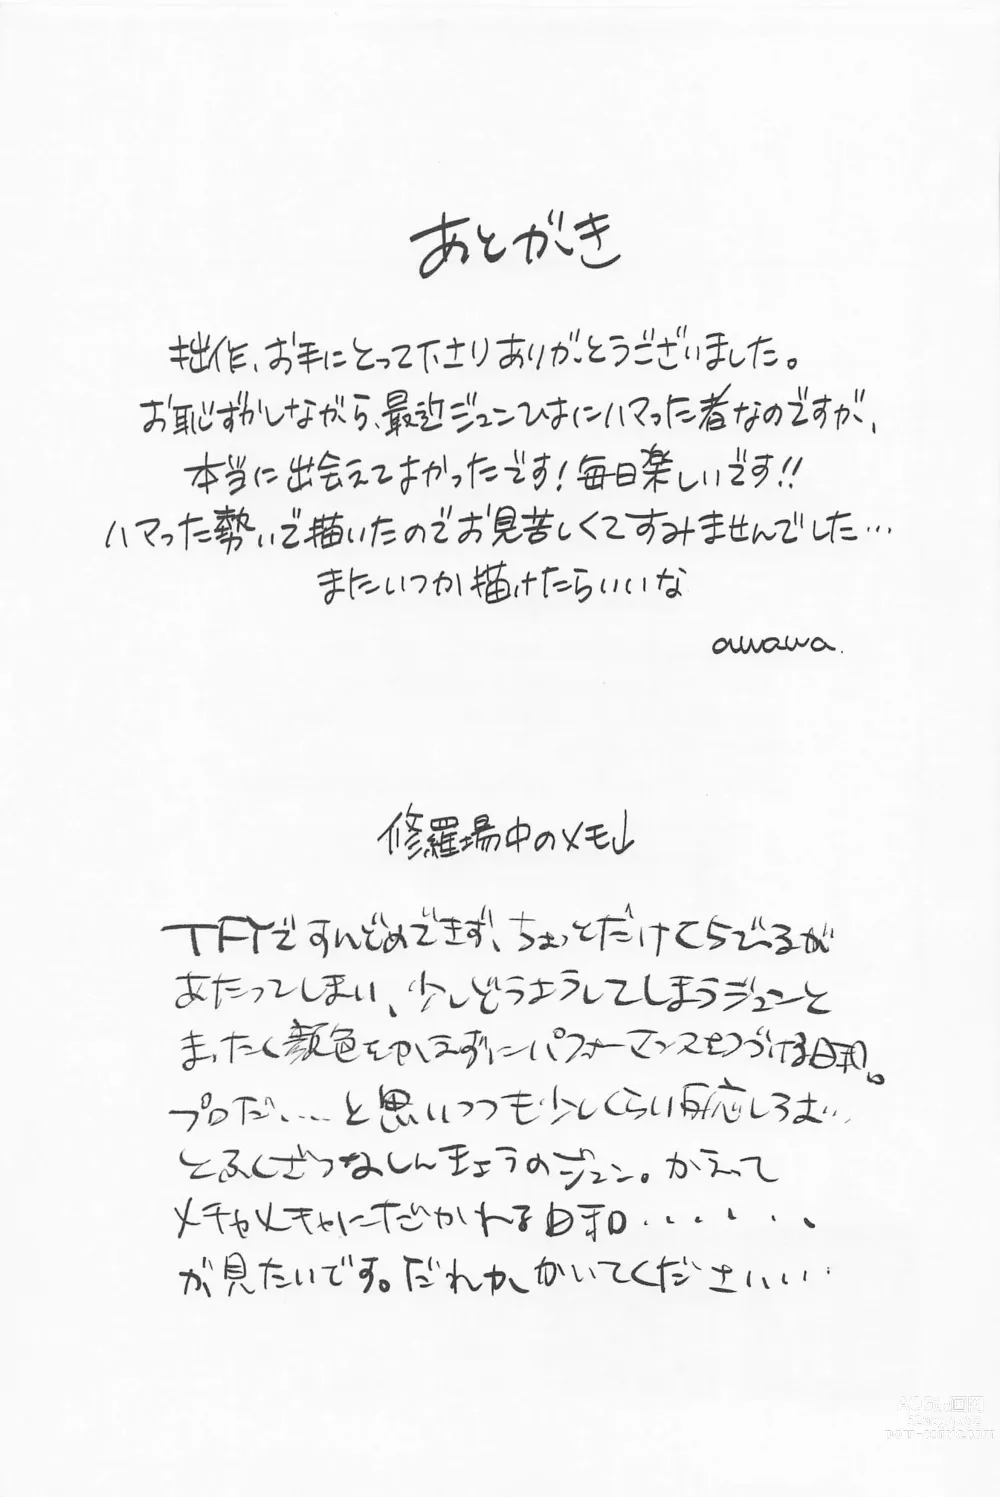 あとがき
拙作、お手にとって下さりありがとうございました。
お恥ずかしながら、最近ジュンひよにハマった者なのですが、
本当に出会えてよかったです！毎日楽しいです!!
ハマった勢いで描いたのでお見苦しくてすみませんでした…
またいつか描けたらいいな
awawa.
修羅場中のメモ↓
TFYですんどめできず、ちょっとだけくちびるが
あたってしまい、少しどうようしてしまうジュンと
まったく顔色をかえずにパフォーマンスをつづける日和。
プロだ....と思いつつも少しくらい反応しろよ...
とふくざつなしんきょうのジュン。かえって
メチャメチャにだかれる日和.......
が見たいです。だれかかいてください...